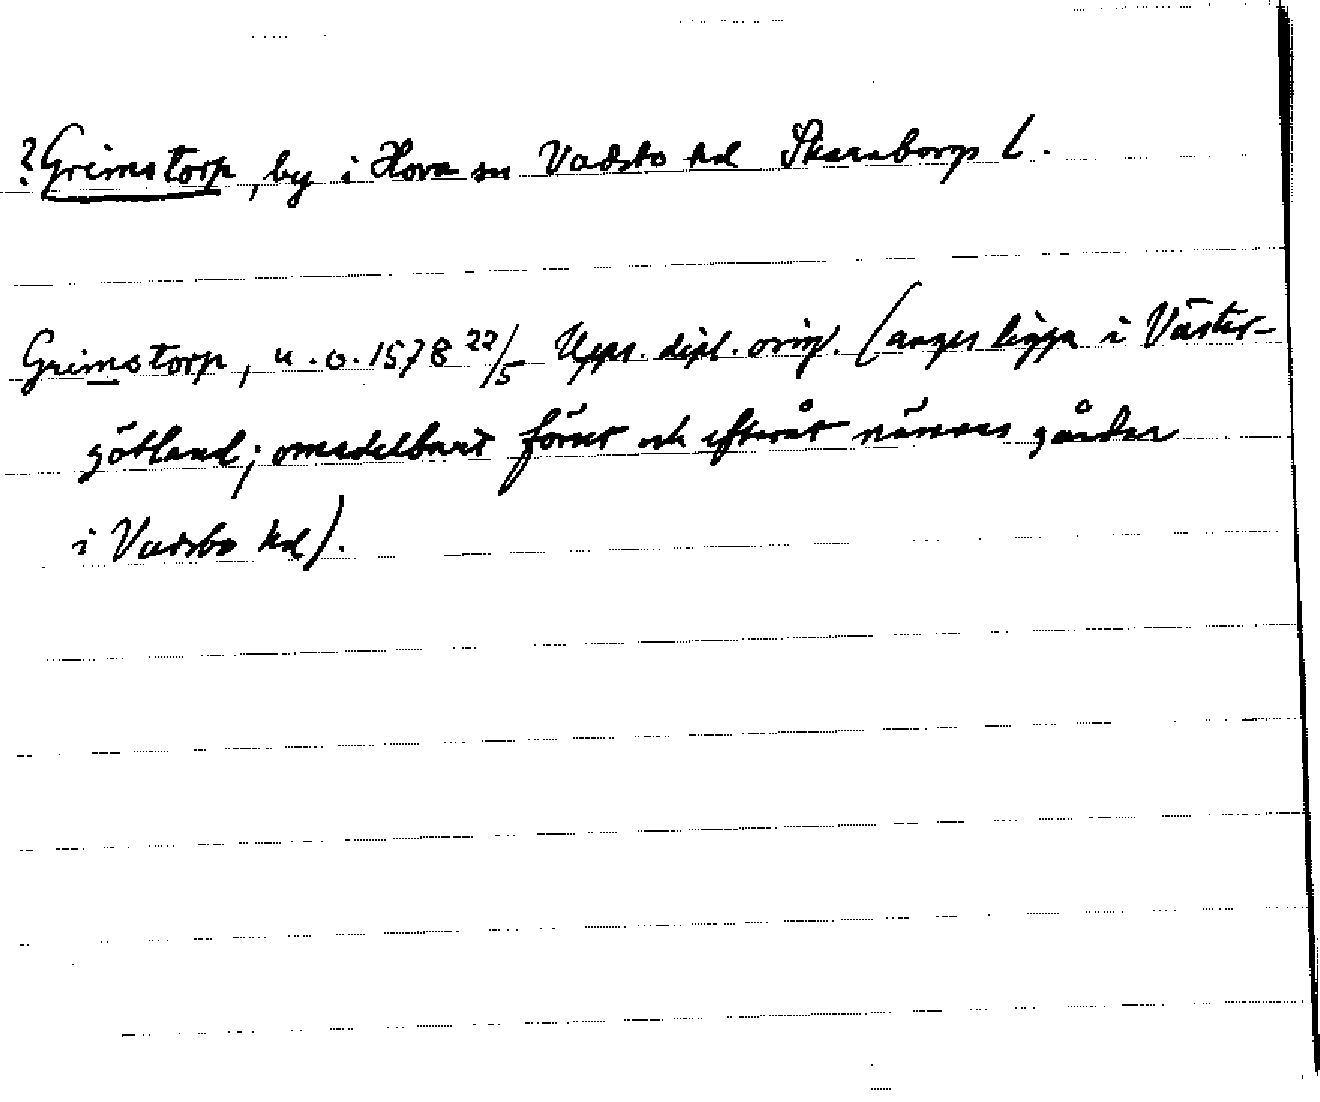 ?Grimstorp, by i Hova sn Vadsbo hd Skaraborgs l.
Grimstorp, u.o. 1578 22/5 Upps. dipl. orig. (anges ligga i Väster-
götland; omedelbart förut och efteråt nämnes gårdar
i Vadsbo hd).